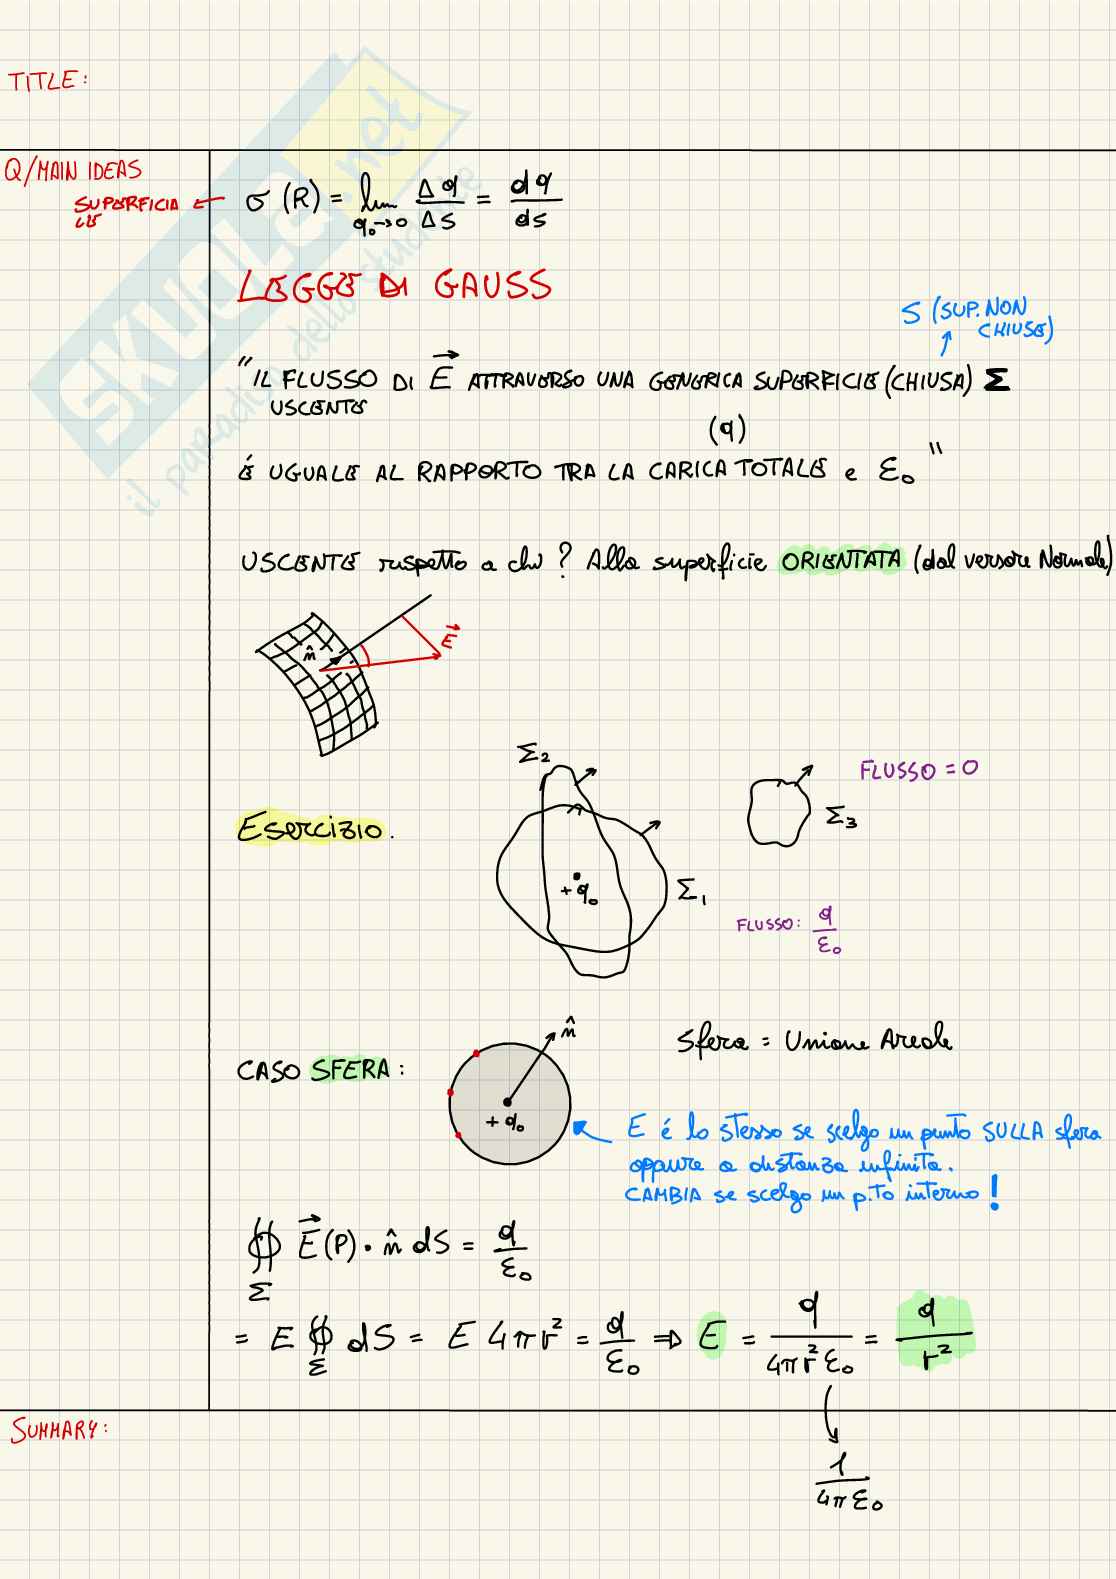 TITLE:
Q/MAIN IDEAS
SUPERFICIA
LE
σ (R) = lim Δq/Δs = dq/ds
q₀→0
LEGGE DI GAUSS
S (SUP. NON
CHIUSE)
"IL FLUSSO DI E⃗ ATTRAVERSO UNA GENERICA SUPERFICIE (CHIUSA) Σ
USCENTE
(q)
É UGUALE AL RAPPORTO TRA LA CARICA TOTALE e ε₀"
USCENTE rispetto a chi? Alla superficie ORIENTATA (dal versore Normale)
n̂
E⃗
Σ₂
FLUSSO = 0
Esercizio.
Σ₃
+q₀
Σ₁
FLUSSO: q/ε₀
n̂
Sfera = Unione Areole
CASO SFERA:
+q₀
E é lo stesso se scelgo un punto SULLA sfera
oppure a distanza infinita.
CAMBIA se scelgo un p.to interno!
∯ E⃗(P) · n̂ dS = q/ε₀
Σ
= E ∯ dS = E 4πr² = q/ε₀ ⇒ E = q/4πr²ε₀ = q/r²
Σ
SUMMARY:
1/4πε₀
SKUOLA.net
il paradiso dello studente